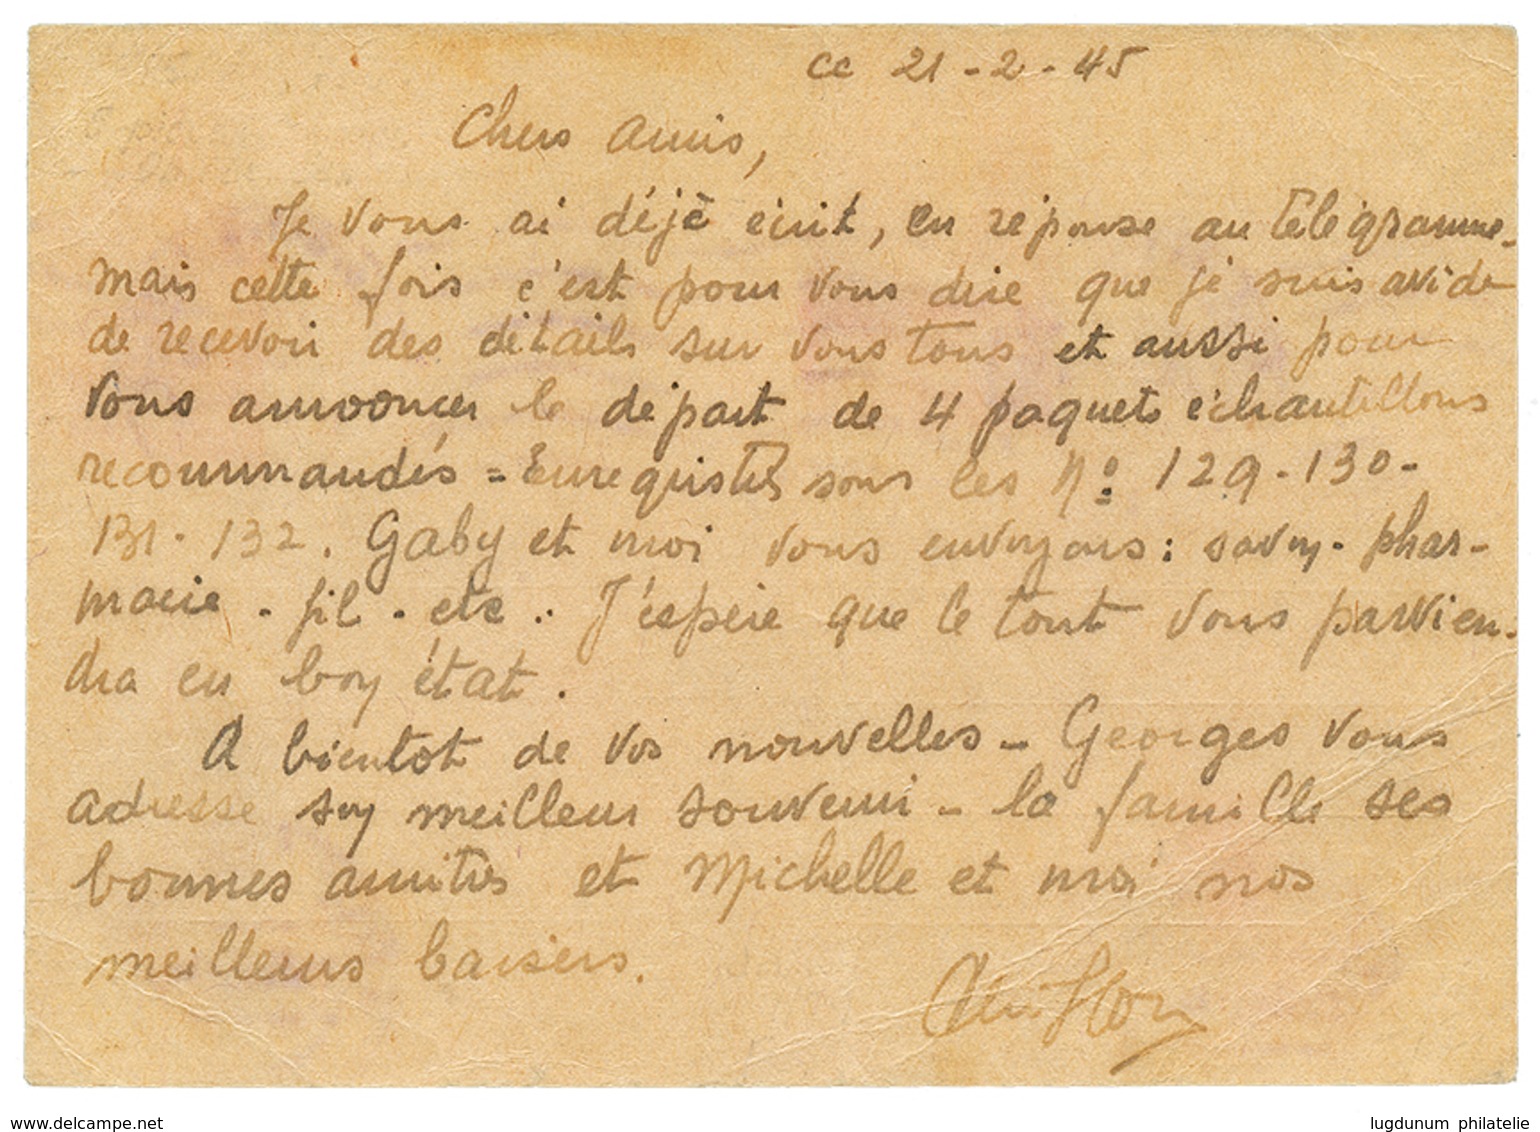 ce 21-2-45
Chers Amis,
Je vous ai déjè écrit, en réponse au télégramme.
mais cette fois c'est pour vous dire que je suis avide
de recevoir des détails sur vous tous et aussi pour
vous annoncer le départ de 4 paquets échantillons
recommandés = Enregistrés sous les No 129-130-
131-132. Gaby et moi vous envoyons : savon - phar-
macie - fil - etc . J'espère que le tout vous parvien-
dra en bon état .
A bientot de vos nouvelles - Georges vous
adresse son meilleur souvenir - la famille ses
bonnes amitiés et Michelle et moi nos
meilleurs baisers.
www.delcampe.net
lugdunum philatelie